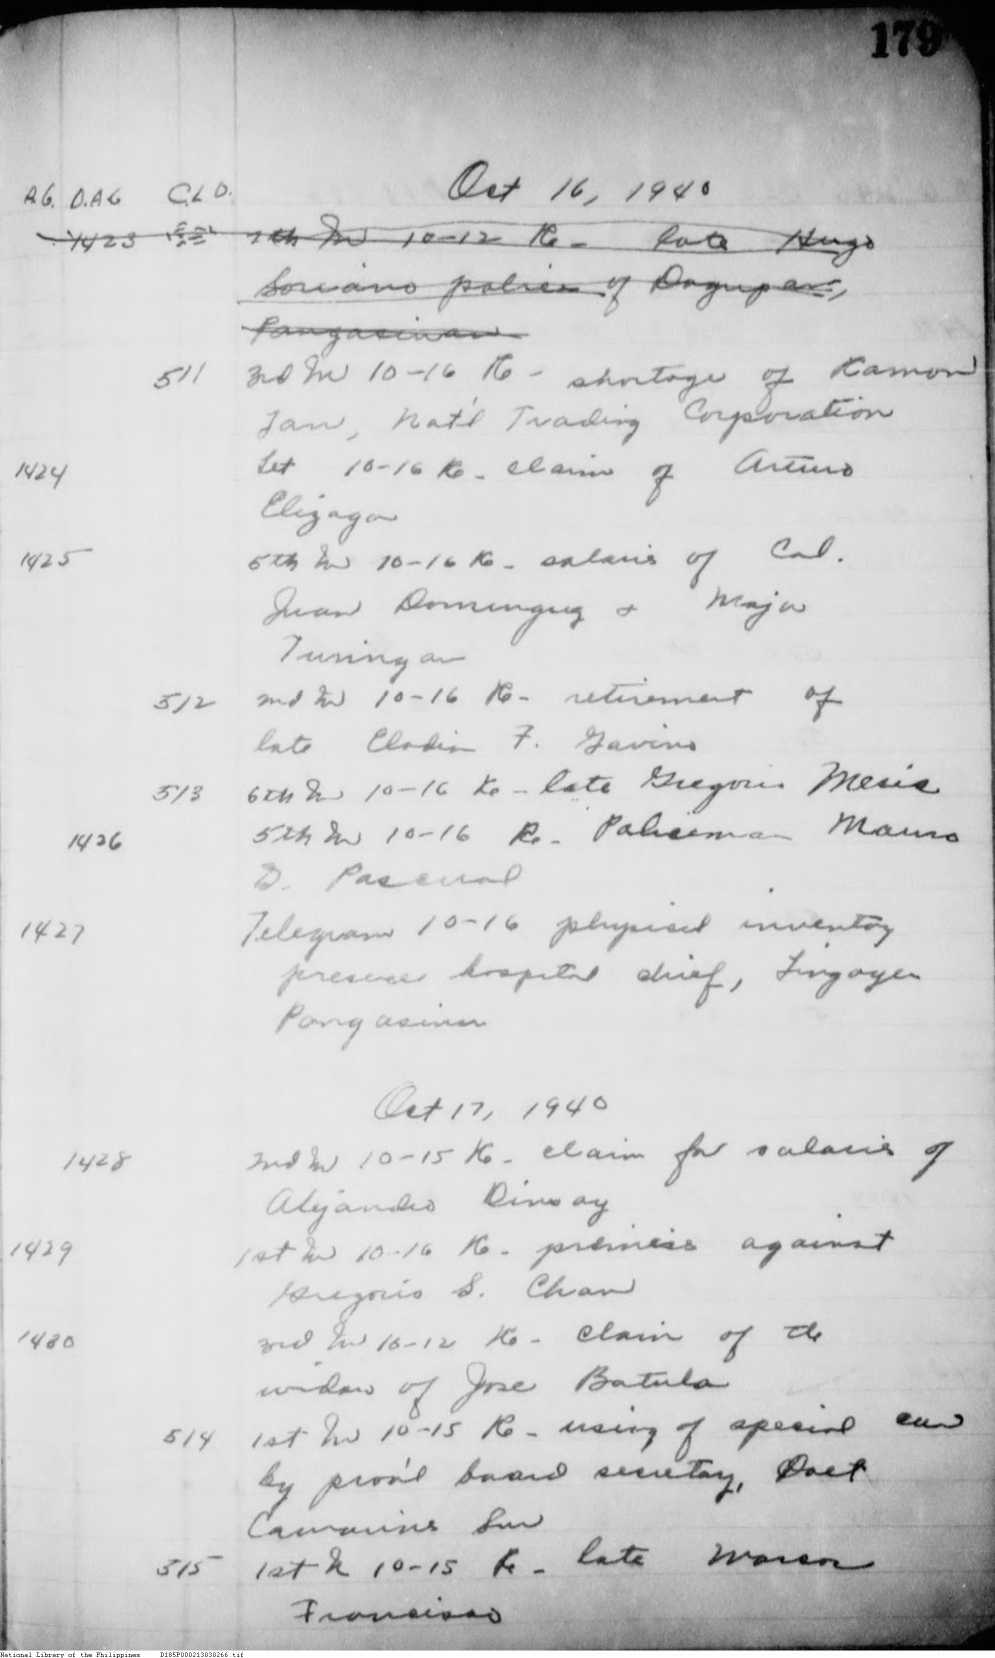 179
Oct 16, 1940
A.G. D.A.G C.L.D.
1423 7th In 10-12 Re- late Hugo
Soriano police of Dagupan,
Pangasinan
511 3rd In 10-16 Re - shortage of Ramon
Tan, Nat'l Trading Corporation
1424 Let 10-16 Re - claim of Arturo
Elizaga
1425 5th In 10-16 Re - salaries of Col.
Juan Dominguez & Major
Turingan
512 2nd In 10-16 Re - retirement of
late Eladio F. Gavino
513 6th In 10-16 Re - late Gregorio
1426 5th In 10-16 Re - Policeman Mauro
D. Pascual
1427 Telegram 10-16 physical inventory
presence hospital chief, Lingayen
Pangasinan
Oct 17, 1940
1428 2nd In 10-15 Re - claim for salaries of
Alejandro
1429 1st In 10-16 Re - against
Gregorio S. Chan
1430 3rd In 10-12 Re - claim of the
widow of Jose Batula
514 1st In 10-15 Re - using of special car
by prov'l board secretary,
Camarines Sur
515 1st In 10-15 Re - late
Francisco
National Library of the Philippines D185P000213030266.tif